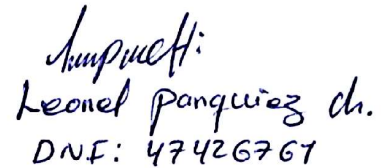 Leonel Panquiez ch.
DNI: 47426761